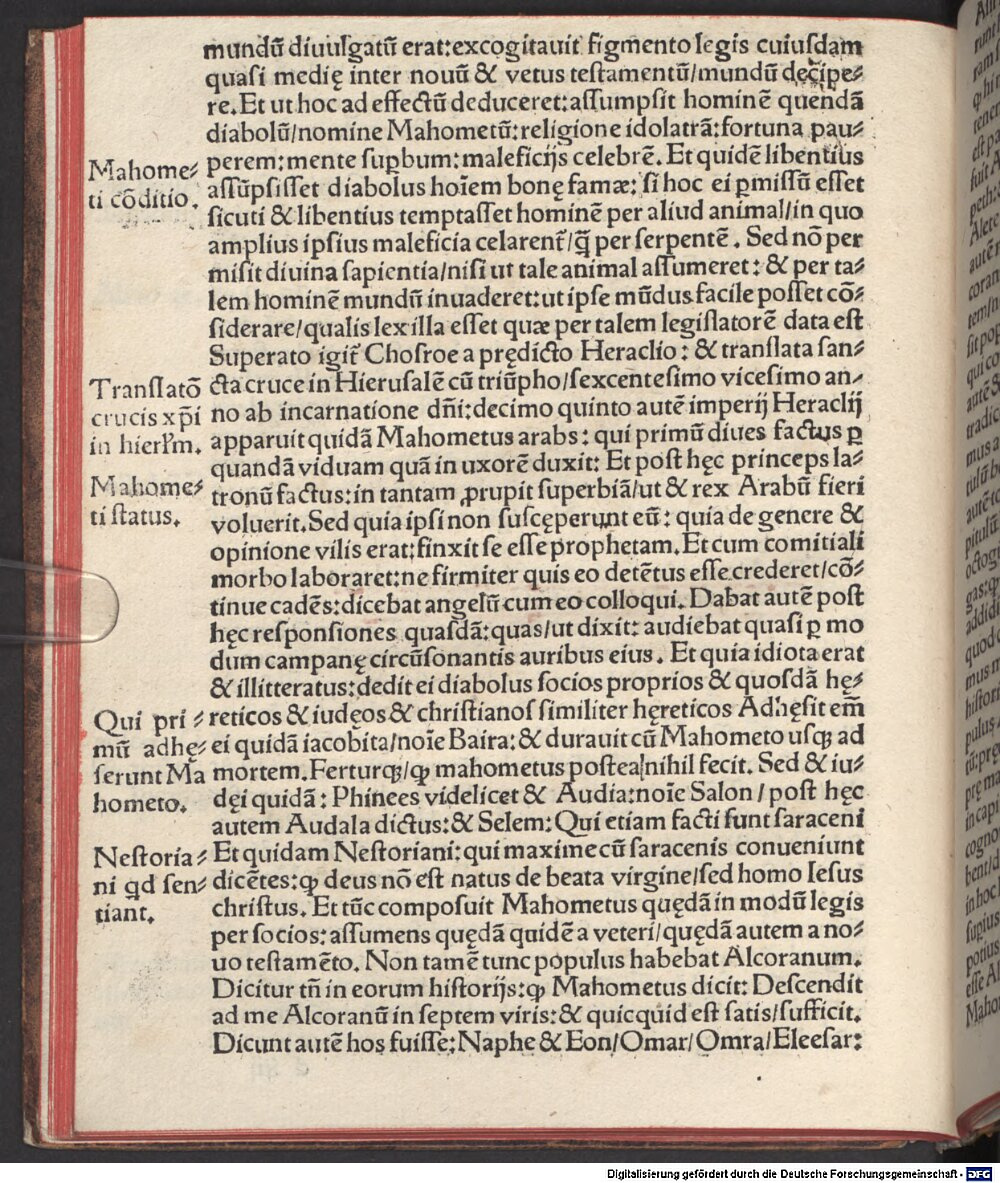 mundū diuulgatū erat:excogitauit figmento legis cuiusdam
quasi medię inter nouū & vetus testamentū/mundū decipe⸗
re.Et ut hoc ad effectū deduceret:assumpsit hominē quendā
diabolū/nomine Mahometū:religione idolatrā:fortuna pau⸗
perem:mente supbum:maleficijs celebrē. Et quidē libentius
assūpsisset diabolus hoīem bonę famæ: si hoc ei ꝑmissū esset
sicuti & libentius temptasset hominē per aliud animal/in quo
amplius ipsius maleficia celarent̄/q̄ per serpentē. Sed nō per
misit diuina sapientia/nisi ut tale animal assumeret: & per ta⸗
lem hominē mundū inuaderet:ut ipse mūdus facile posset cō⸗
siderare/qualis lex illa esset quæ per talem legislatorē data est
Superato igit̄ Chosroe a prędicto Heraclio: & translata san⸗
cta cruce in Hierusalē cū triūpho/sexcentesimo vicesimo an⸗
no ab incarnatione dn̄i:decimo quinto autē imperij Heraclij
apparuit quidā Mahometus arabs: qui primū diues factus ꝑ
quandā viduam quā in uxorē duxit: Et post hęc princeps la⸗
tronū factus:in tantam ꝓrupit superbiā/ut & rex Arabū fieri
voluerit.Sed quia ipsi non suscęperunt eū: quia de genere &
opinione vilis erat:finxit se esse prophetam.Et cum comitiali
morbo laboraret:ne firmiter quis eo detētus esse crederet/cō⸗
tinue cadēs:dicebat angelū cum eo colloqui. Dabat autē post
hęc responsiones quasdā:quas/ut dixit: audiebat quasi ꝑ mo
dum campanę circūsonantis auribus eius. Et quia idiota erat
& illitteratus:dedit ei diabolus socios proprios & quosdā hę⸗
reticos & iudęos & christianos similiter hęreticos Adhęsit em̄
ei quidā iacobita/noīe Baira: & durauit cū Mahometo usqꝫ ad
mortem.Ferturqꝫ/ꝙ mahometus postea nihil fecit. Sed & iu⸗
dęi quidā: Phinees videlicet & Audia:noīe Salon/post hęc
autem Audala dictus:& Selem: Qui etiam facti sunt saraceni
Et quidam Nestoriani:qui maxime cū saracenis conueniunt
dicētes:ꝙ deus nō est natus de beata virgine/sed homo Iesus
christus. Et tūc composuit Mahometus quędā in modū legis
per socios: assumens quędā quidē a veteri/quędā autem a no⸗
uo testamēto. Non tamē tunc populus habebat Alcoranum.
Dicitur tn̄ in eorum historijs:ꝙ Mahometus dicit: Descendit
ad me Alcoranū in septem viris:& quicquid est satis/sufficit.
Dicunt autē hos fuisse:Naphe & Eon/Omar/Omra/Eleesar:
Mahome⸗
ti cōditio.
Translatō
crucis xp̄i
in hierłm.
Mahome⸗
ti status.
Qui pri⸗
mū adhę⸗
serunt Ma
hometo.
Nestoria⸗
ni qd sen⸗
tiant.
Digitalisierung gefördert durch die Deutsche Forschungsgemeinschaft - DFG